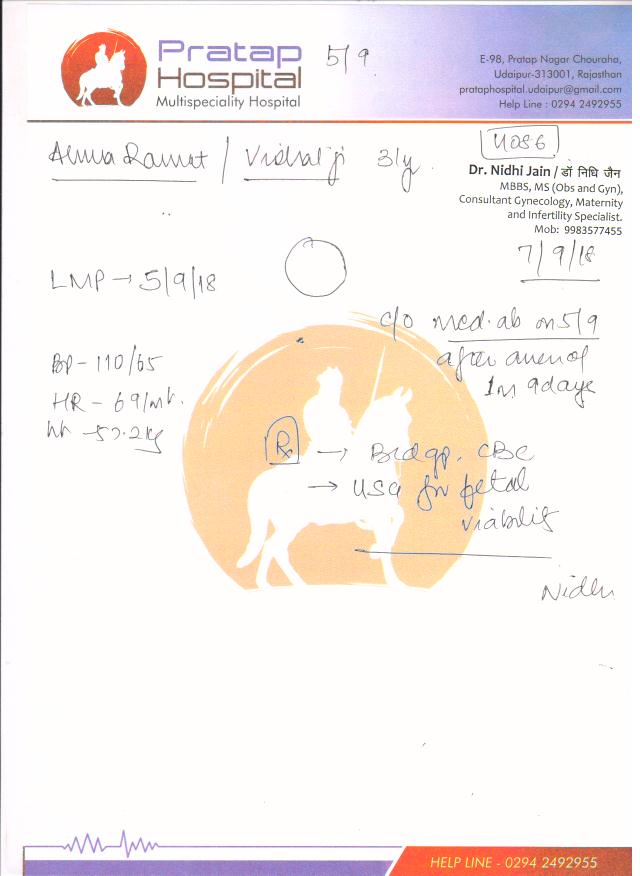 Pratap
Hospital
Multispeciality Hospital
5/9
E-98, Pratap Nagar Chouraha,
Udaipur-313001, Rajasthan
prataphospital.udaipur@gmail.com
Help Line : 0294 2492955
Dr. Nidhi Jain / डॉ निधि जैन
MBBS, MS (Obs and Gyn),
Consultant Gynecology, Maternity
and Infertility Specialist.
Mob: 9983577455
7/9/18
LMP → 5/9/18
c/o med. ab on 5/9
after amen of
1m 9days
BP - 110/65
HR - 69/mt.
Rx → Bldgp. CBC
→ USG for fetal
viability
HELP LINE - 0294 2492955